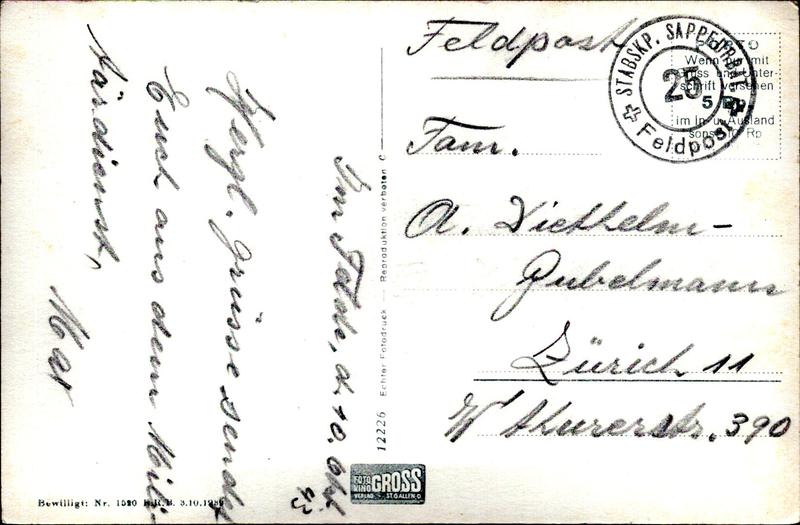 Im Felde, d. 10. Okt. 43
Herzl. Grüsse sendet
Euch aus dem Mili-
tärdienst,
Max
Feldpost
Fam.
A. Diethelm-
Bubelmann
Zürich 11
W'thurerstr. 390
STABSKP. SAPPEUR BAT.
25
Feldpost
Wenn nur mit
Gruss und Unter-
schrift versehen
5 Rp
im In- u. Ausland
sonst 10 Rp
12226 Echter Fotodruck — Reproduktion verboten C
FOTO
KINO
VERLAG
GROSS
ST. GALLEN O
Bewilligt: Nr. 1520 B.R.B. 3.10.1939